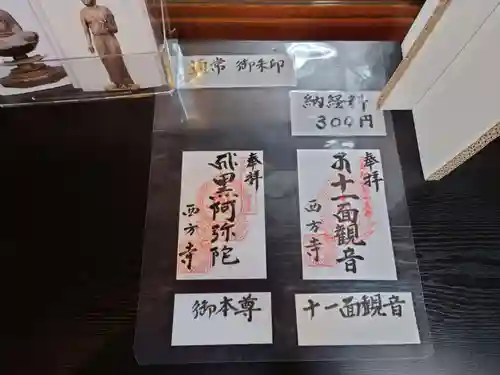 通常 御朱印
納経料
300円
奉拝
十一面観音
西方寺
奉拝
黒阿弥陀
西方寺
十一面観音
御本尊